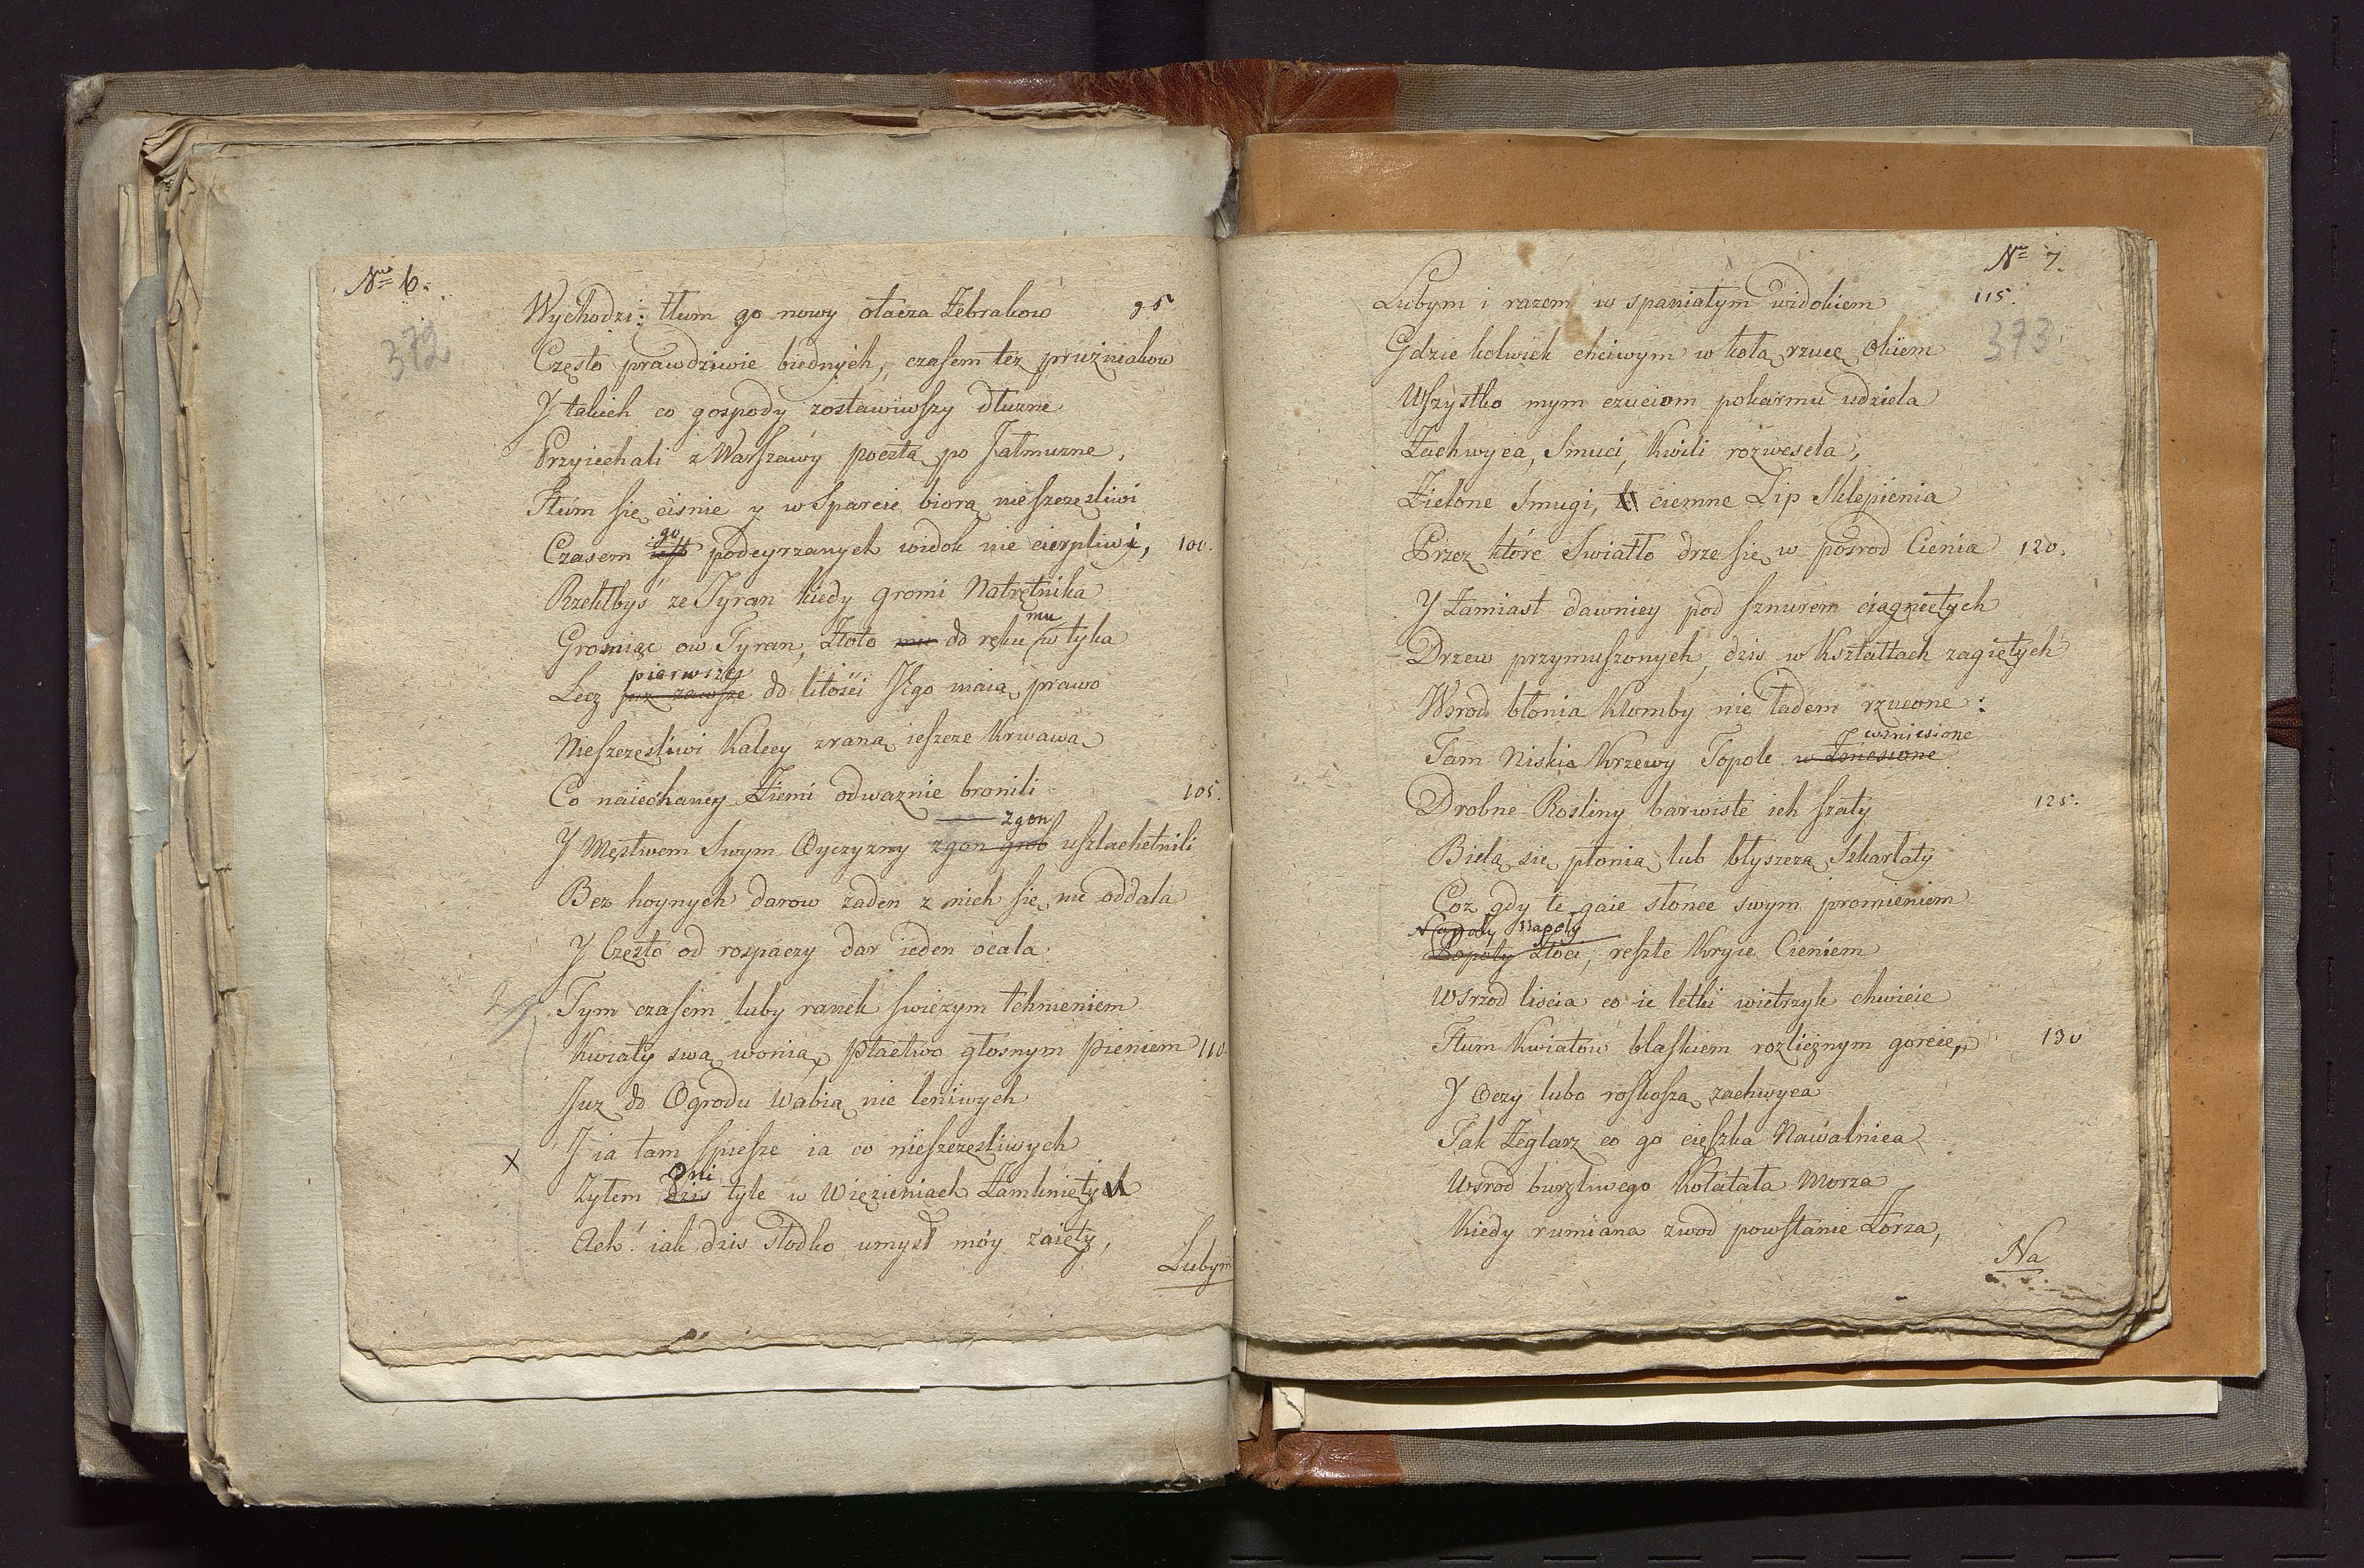 Nro 6.
372
Wychodzi: tłum go nowy otacza Żebrakow 95
Często prawdziwie biednych, czasem też prużniakow
Y takich co gospody zostawiwszy dłużne
Przyiechali z Warszawy pocztą po Jałmużne,
Tłum się cisnie y wsparcie biorą nieszczęsliwi
go
Czasem podeyrzanych widok nie cierpliwi, 100.
Rzekłbyś ze Tyran kiedy gromi Natrętnika
mu
Gromiąc ow Tyran, Złoto mu do ręku wtyka
pierwsze
Lecz juz zawsze do litości Jego maią prawo
Nieszczęsliwi Kalecy z raną ieszcze Krwawą
Co naiechaney Ziemi odwaznie bronili 105.
zgon
Y Męstwem Swym Oyczyzny zgon grob uszlachetnili
Bez hoynych darow zaden z nich się nie oddala
Y Często od rospaczy dar ieden ocala
Tym czasem luby ranek swieżym tchnieniem
Kwiaty swą wonią, ptactwo głosnym pieniem 110.
Juz do Ogrodu wabią nie leniwych
J ia tam spiesze ia co nieszczęsliwych
x
Dni
Zyłem dzis tyle w Więzieniach Zamknięty
Ach! iak dzis słodko umysł móy zaięty,
Lubym
Nro 7.
Lubym i razem w spaniałym widokiem 115.
373
Gdzie kolwiek chciwym w koła rzucę Okiem
Wszystko mym czuciom pokarmu udziela
Zachwyca, Smuci, Kwili rozwesela,
Zielone Smugi, ciemne Lip Sklepienia
Przez które Swiatło drze się w pośrod Cienia 120.
Y Zamiast dawniey pod sznurem ciągnietych
Drzew przymuszonych, dzis w Kształtach zagiętych
Wsrod błonia Klomby nie ładem rzucone:
wzniesione
Tam Niskie Krzewy Topole w Zniesione
Drobne Rosliny barwiste ich szaty 125.
Bielą się płonią lub błyszczą Szkarłaty
Coz gdy te gaie słonce swym promieniem
Napoły Napoły
Dopoły Złoci, reszte Kryie Cieniem
Wsrzod liscia co ie letki wietrzyk chwieie
Tłum Kwiatow blaskiem rozlicznym goreie, 130
Y Oczy lubo roskoszą zachwyca
Tak Żeglarz co go cięszka Nawałnica
Wsrod burzliwego Kołatała Morza
Kiedy rumiana zwod powstanie Zorza,
Na